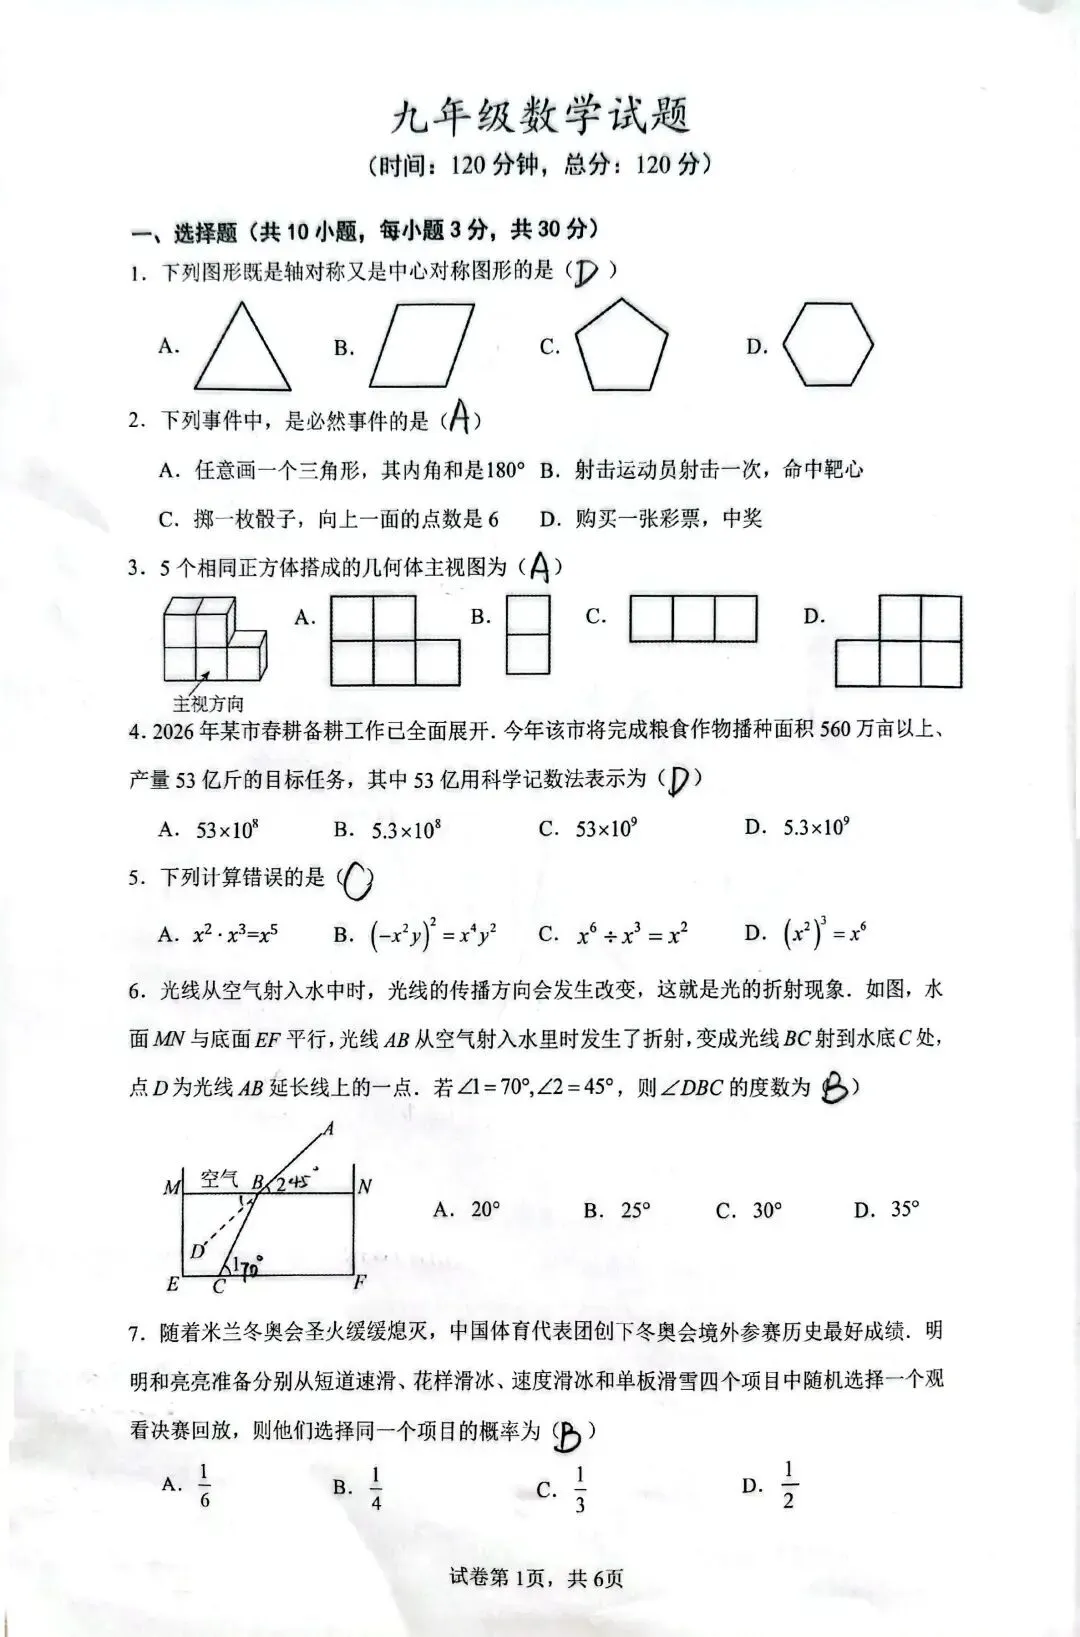 九年级数学试题
（时间：120分钟，总分：120分）
一、选择题（共10小题，每小题3分，共30分）
1．下列图形既是轴对称又是中心对称图形的是（D）
A． B． C． D．
2．下列事件中，是必然事件的是（A）
A．任意画一个三角形，其内角和是180° B．射击运动员射击一次，命中靶心
C．掷一枚骰子，向上一面的点数是6 D．购买一张彩票，中奖
3．5个相同正方体搭成的几何体主视图为（A）
A． B． C． D．
主视方向
4．2026年某市春耕备耕工作已全面展开．今年该市将完成粮食作物播种面积560万亩以上、
产量53亿斤的目标任务，其中53亿用科学记数法表示为（D）
A．53×10⁸ B．5.3×10⁸ C．53×10⁹ D．5.3×10⁹
5．下列计算错误的是（C）
A．x²·x³=x⁵ B．(−x²y)²=x⁴y² C．x⁶÷x³=x² D．(x²)³=x⁶
6．光线从空气射入水中时，光线的传播方向会发生改变，这就是光的折射现象．如图，水
面MN与底面EF平行，光线AB从空气射入水里时发生了折射，变成光线BC射到水底C处，
点D为光线AB延长线上的一点．若∠1=70°,∠2=45°，则∠DBC的度数为（B）
A
M 空气 B 2 45° N
D
1 70°
E C F
A．20° B．25° C．30° D．35°
7．随着米兰冬奥会圣火缓缓熄灭，中国体育代表团创下冬奥会境外参赛历史最好成绩．明
明和亮亮准备分别从短道速滑、花样滑冰、速度滑冰和单板滑雪四个项目中随机选择一个观
看决赛回放，则他们选择同一个项目的概率为（B）
A．1/6 B．1/4 C．1/3 D．1/2
试卷第1页，共6页